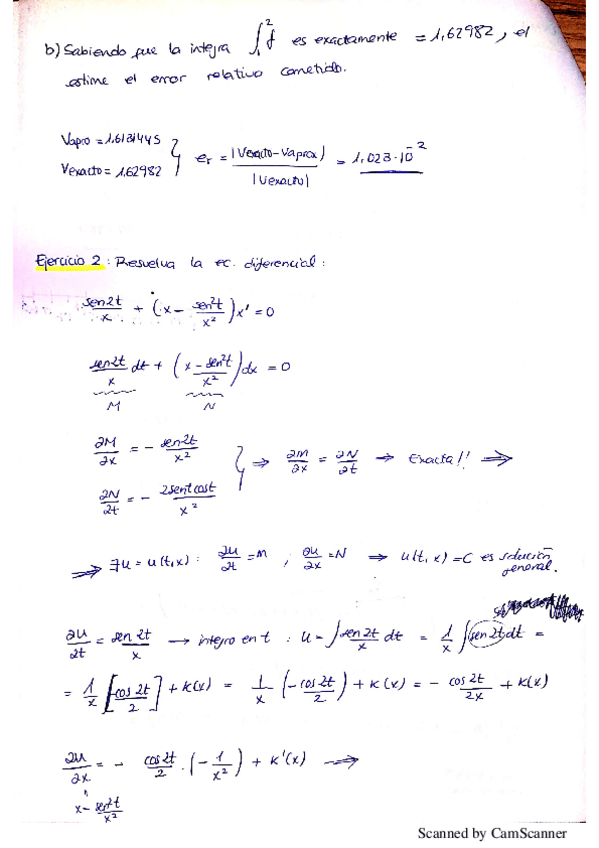 b) Sabiendo que la integra ∫₁² f es exactamente = 1,62982, el
estime el error relativo cometido.
Vapro = 1,6131445
Vexacto = 1,62982 } er = |Vexacto - Vaprox| / |Vexacto| = 1,023·10⁻²
Ejercicio 2: Resuelva la ec. diferencial:
sen2t/x + (x - sen²t/x²)x' = 0
sen2t/x dt + (x - sen²t/x²)dx = 0
M N
∂M/∂x = - sen2t/x²
∂N/∂t = - 2sent cost/x² } ⇒ ∂M/∂x = ∂N/∂t → Exacta!! ⇒
⇒ ∃u = u(t,x) : ∂u/∂t = M ; ∂u/∂x = N → u(t,x) = C es solución
general.
∂u/∂t = sen2t/x → integro en t : u = ∫ sen2t/x dt = 1/x ∫ sen2t dt =
= 1/x [cos2t/2] + K(x) = 1/x (-cos2t/2) + K(x) = - cos2t/2x + K(x)
∂u/∂x = - cos2t/2 · (-1/x²) + K'(x) ⇒
x - sen²t/x²
Scanned by CamScanner